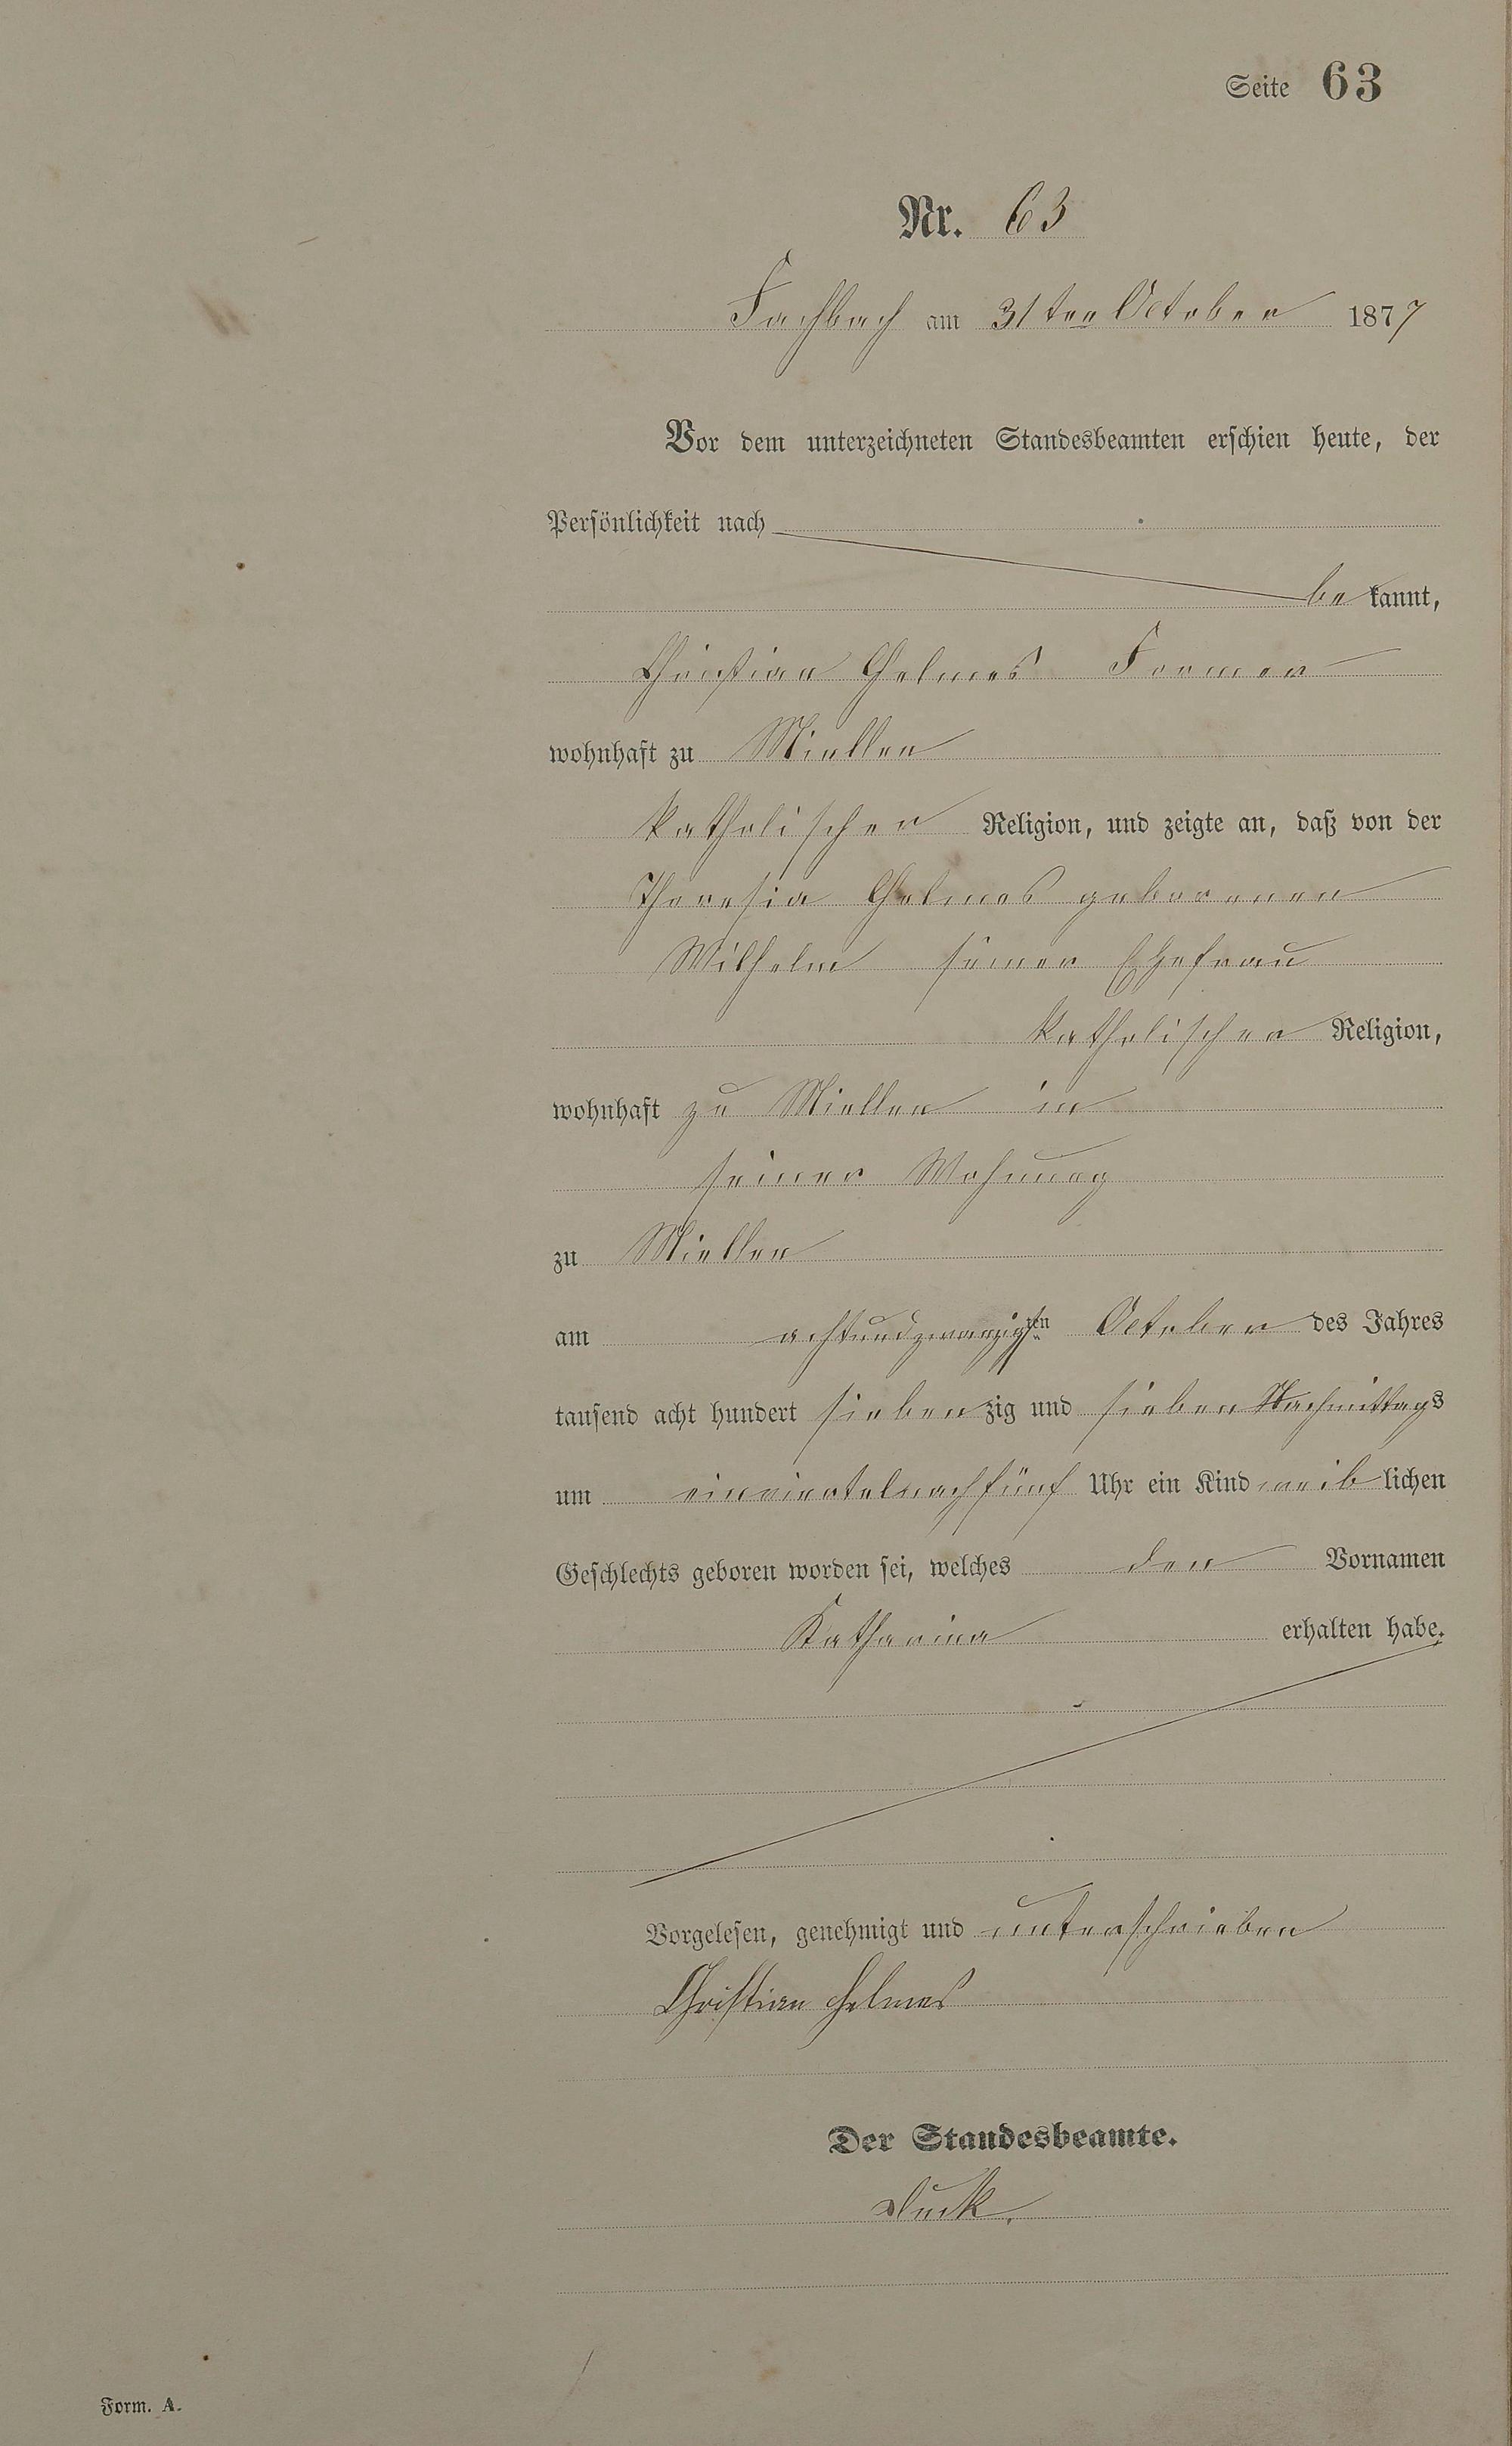 Seite 63
Nr. 63
Fachbach am 31ten October 1877
Vor dem unterzeichneten Standesbeamten erschien heute, der
Persönlichkeit nach
bekannt,
Christian Helmes Former
wohnhaft zu Miellen
katholischer Religion, und zeigte an, daß von der
Theresia Helmes geborenen
Wilhelm seiner Ehefrau
katholischer Religion,
wohnhaft zu Miellen in
seiner Wohnung
zu Miellen
am achtundzwanzigsten October des Jahres
tausend acht hundert siebenzig und sieben Nachmittags
um einviertelnachfünf Uhr ein Kind weiblichen
Geschlechts geboren worden sei, welches den Vornamen
Katharina erhalten habe.
Vorgelesen, genehmigt und unterschrieben
Christian Helmes
Der Standesbeamte.
Form. A.